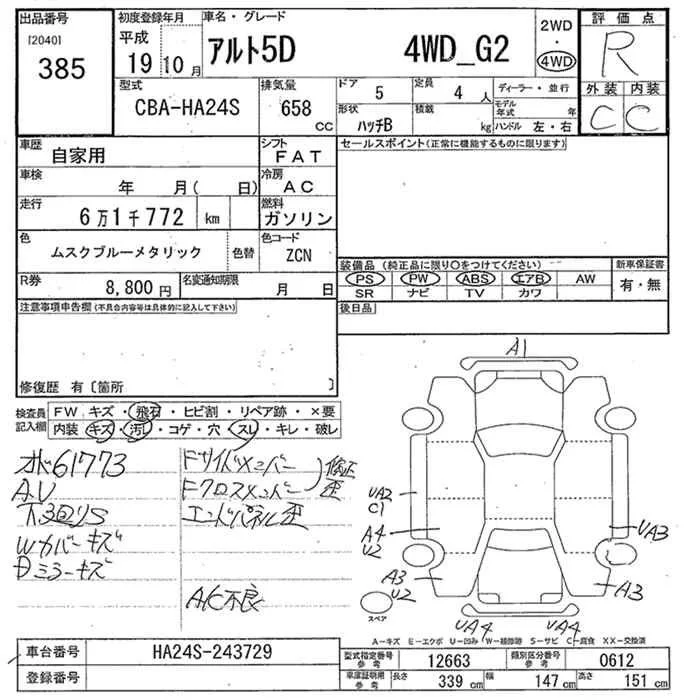 出品番号
[2040]
385
初度登録年月
平成
19 10月
車名・グレード
アルト5D 4WD_G2
2WD
・
4WD
評価点
R
型式
CBA-HA24S
排気量
658 CC
ドア
5
定員
4 人
ディーラー・並行
モデル年式 年
形状
ハッチB
積載
kg
ハンドル 左・右
外装 内装
C C
車歴
自家用
シフト
FAT
セールスポイント(正常に機能するものに限ります)
車検
年 月( 日)
冷房
AC
走行
6万1千772 km
燃料
ガソリン
色
ムスクブルーメタリック
色替
色コード
ZCN
装備品 (純正品に限り○をつけてください)
新車保証書
PS PW ABS エアB AW
有・無
SR ナビ TV カワ
R券
8,800円
名変通知期限
月 日
後日品
注意事項申告欄(不具合内容等は具体的に記入して下さい)
修復歴 有〔箇所 〕
検査員記入欄
FW キズ・飛石・ヒビ割・リペア跡・×要
内装・キズ・汚レ・コゲ・穴・スレ・キレ・破レ
オド61773
AU
下回りS
Wカバーキズ
Dミラーキズ
Fサイドメンバー
Fクロスメンバー
修正
歪
エンドパネル歪
A/C不良
A1
UA2
C1
A4
U2
A3
U2
UA3
A3
UA4 UA4
スペア
A−キズ E−エクボ U−凹み W−補修跡 S−サビ C−腐食 XX−交換済
車台番号
HA24S-243729
登録番号
型式指定番号
参考
12663
類別区分番号
参考
0612
車庫証明用
参考
長さ
339 cm
幅
147 cm
高さ
151 cm